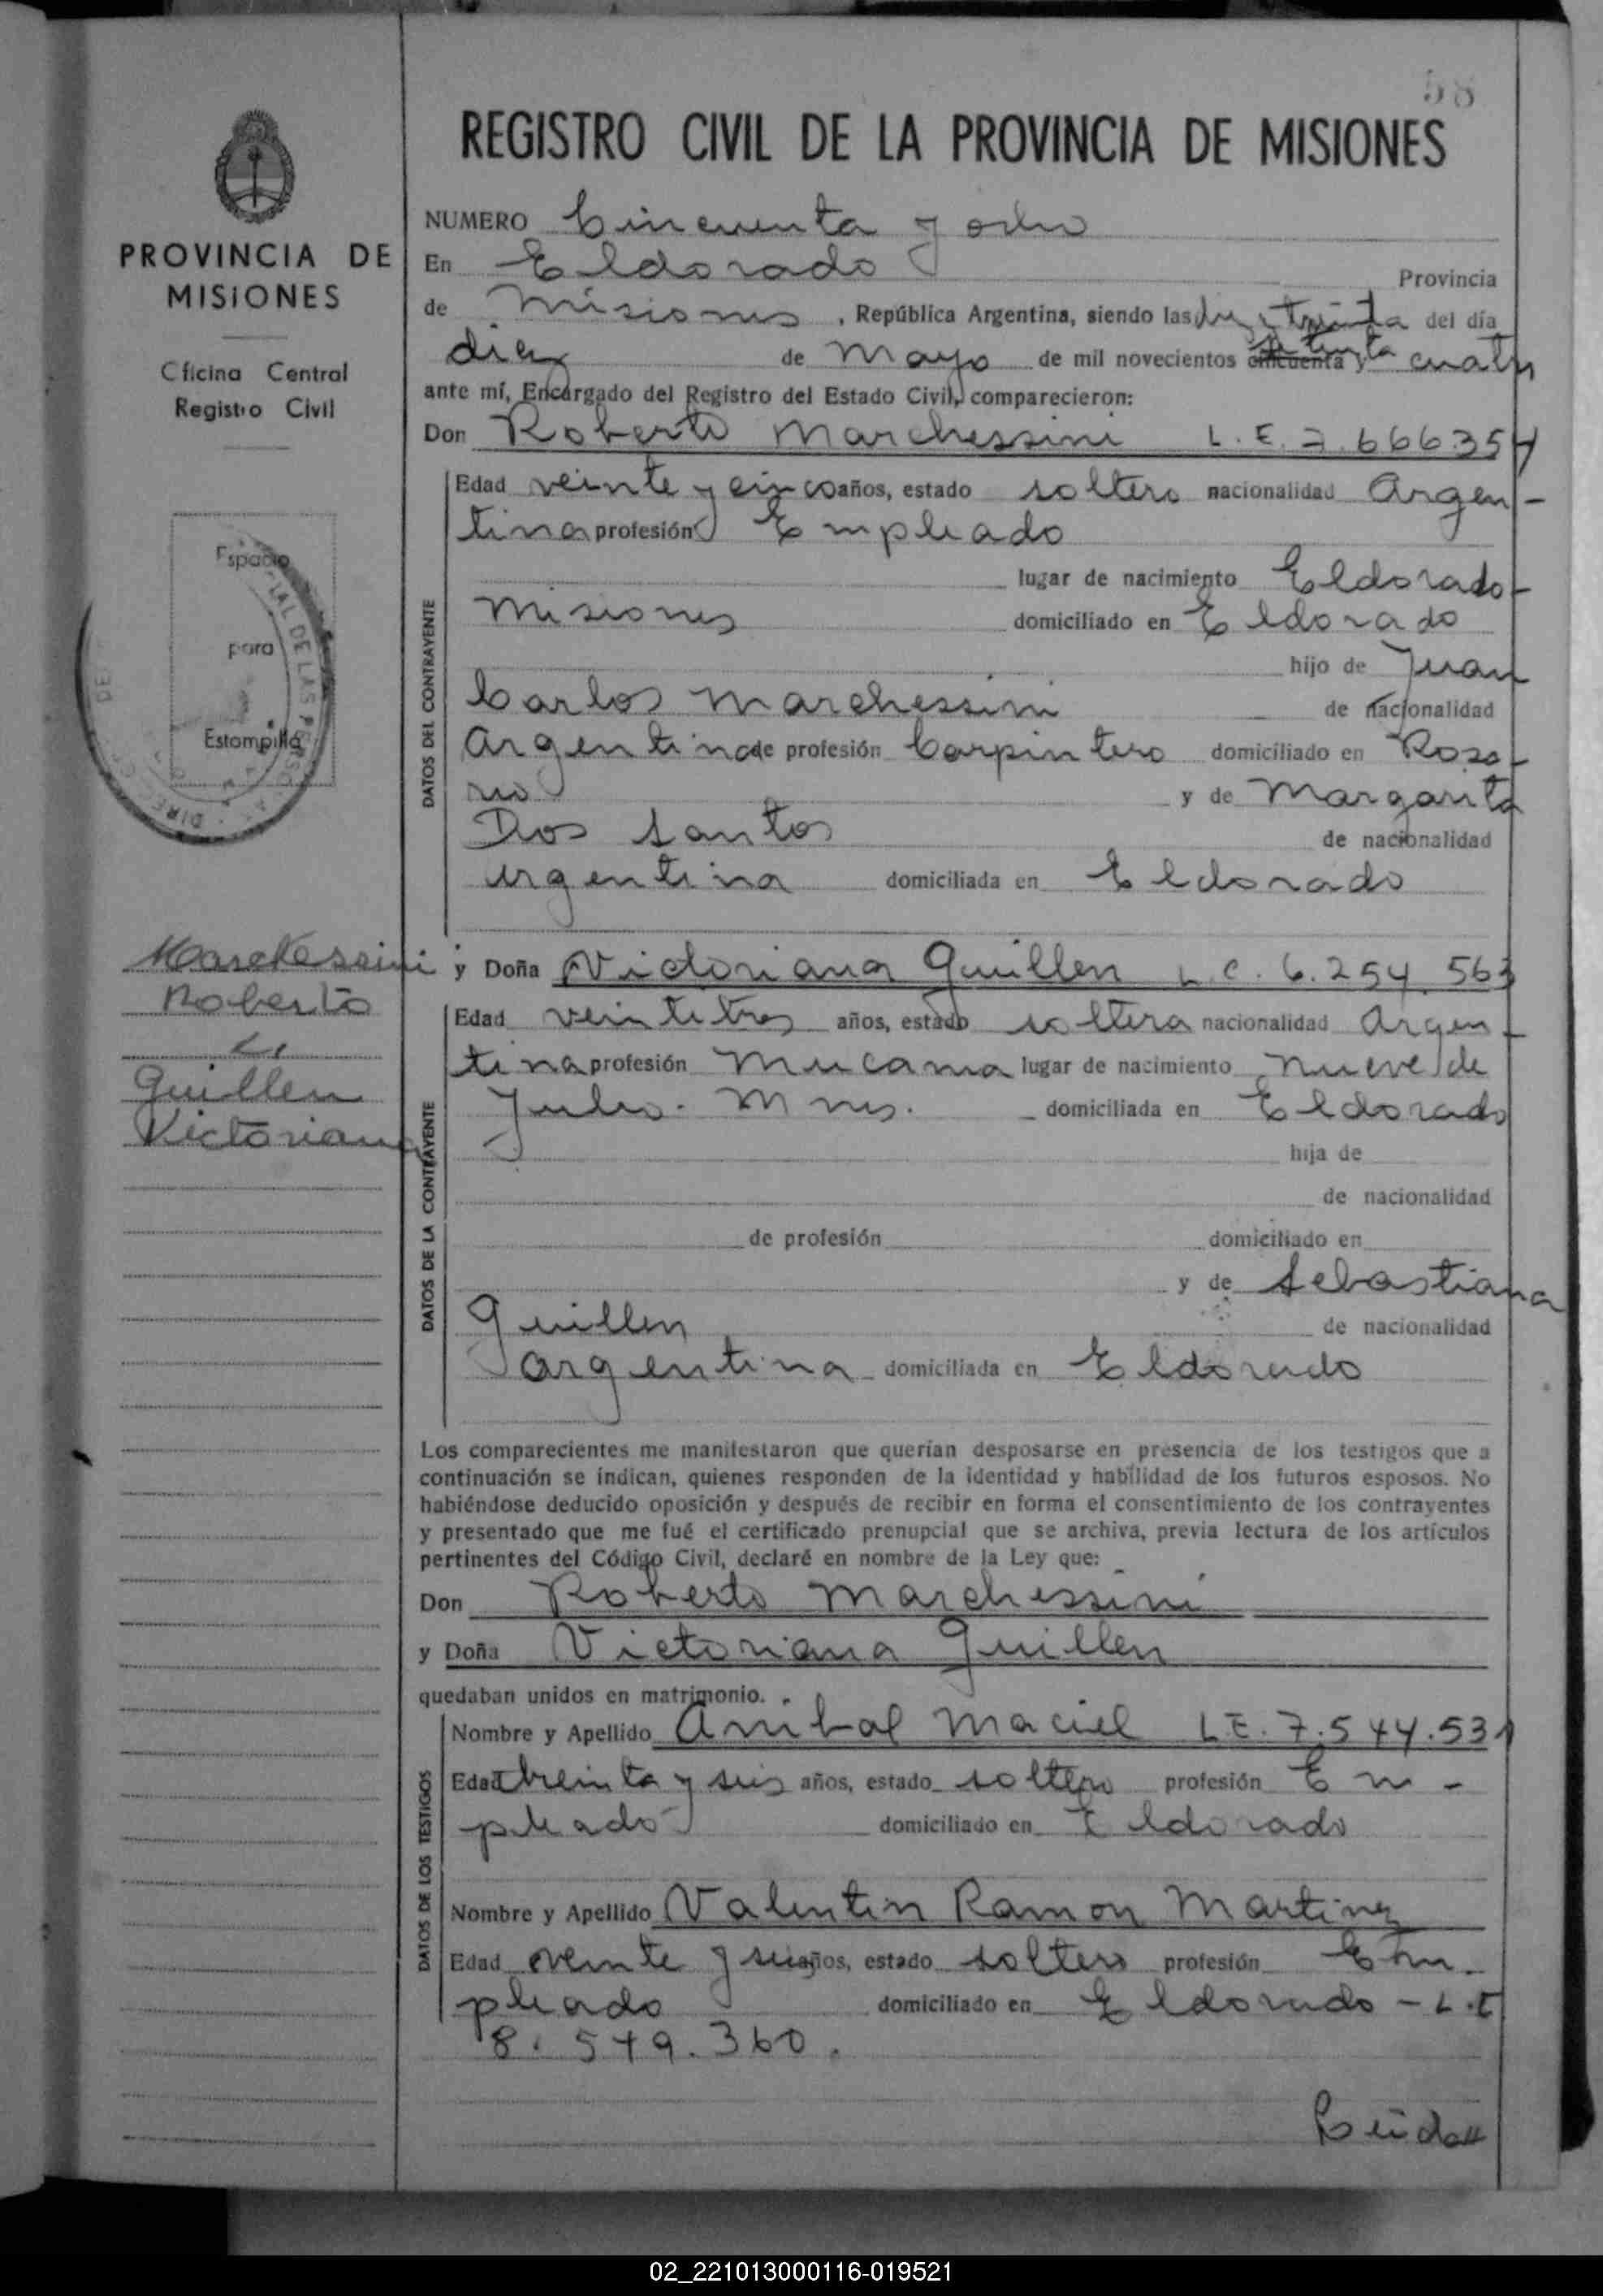 58
REGISTRO CIVIL DE LA PROVINCIA DE MISIONES
PROVINCIA DE
MISIONES
Oficina Central
Registro Civil
Espacio
para
Estampilla
Marchessini
Roberto
c/
Guillen
Victoriana
NUMERO Cincuenta y ocho
En Eldorado Provincia
de Misiones, República Argentina, siendo las diez y treinta del día
diez de Mayo de mil novecientos cincuenta setenta y cuatro
ante mí, Encargado del Registro del Estado Civil, comparecieron:
Don Roberto Marchessini L.E. 7.666354
DATOS DEL CONTRAYENTE
Edad veinte y cinco años, estado soltero nacionalidad Argen-
tina profesión Empleado
lugar de nacimiento Eldorado-
Misiones domiciliado en Eldorado
hijo de Juan
Carlos Marchessini de nacionalidad
Argentina de profesión Carpintero domiciliado en Rosa-
rio y de Margarita
Dos Santos de nacionalidad
argentina domiciliada en Eldorado
y Doña Victoriana Guillen L.C. 6.254.563
DATOS DE LA CONTRAYENTE
Edad veintitres años, estado soltera nacionalidad Argen-
tina profesión Mucama lugar de nacimiento Nueve de
Julio. Mnes. domiciliada en Eldorado
hija de
de nacionalidad
de profesión domiciliado en
y de Sebastiana
Guillen de nacionalidad
argentina domiciliada en Eldorado
Los comparecientes me manifestaron que querían desposarse en presencia de los testigos que a
continuación se indican, quienes responden de la identidad y habilidad de los futuros esposos. No
habiéndose deducido oposición y después de recibir en forma el consentimiento de los contrayentes
y presentado que me fué el certificado prenupcial que se archiva, previa lectura de los artículos
pertinentes del Código Civil, declaré en nombre de la Ley que:
Don Roberto Marchessini
y Doña Victoriana Guillen
quedaban unidos en matrimonio.
DATOS DE LOS TESTIGOS
Nombre y Apellido Anibal Maciel L.E. 7.544.531
Edad treinta y seis años, estado soltero profesión Em-
pleado domiciliado en Eldorado
Nombre y Apellido Valentin Ramon Martinez
Edad veinte y seis años, estado soltero profesión Em-
pleado domiciliado en Eldorado - L.E
8.549.360.
02_221013000116-019521